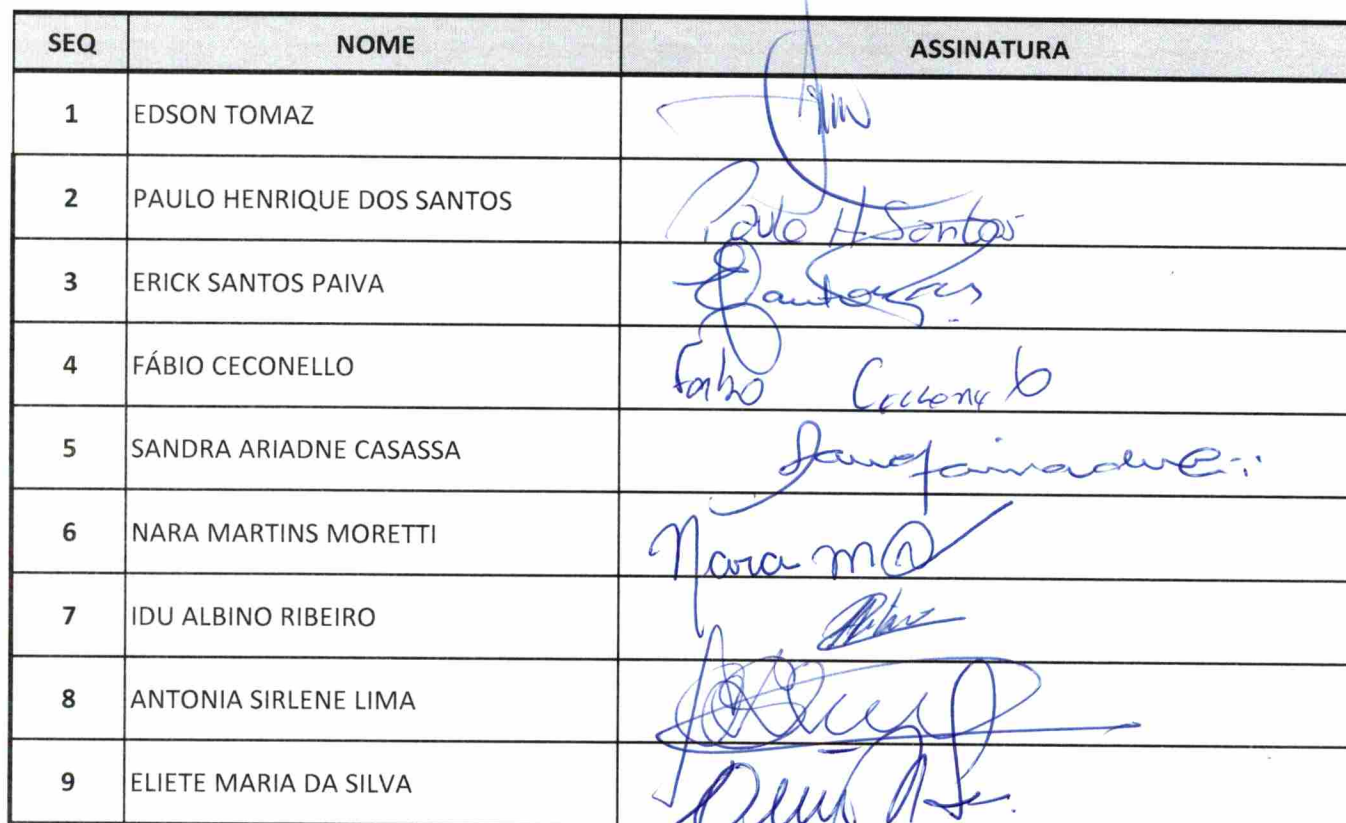 SEQ NOME ASSINATURA
1 EDSON TOMAZ
2 PAULO HENRIQUE DOS SANTOS Paulo H Santos
3 ERICK SANTOS PAIVA
4 FÁBIO CECONELLO Fabio
5 SANDRA ARIADNE CASASSA
6 NARA MARTINS MORETTI Nara m
7 IDU ALBINO RIBEIRO
8 ANTONIA SIRLENE LIMA
9 ELIETE MARIA DA SILVA